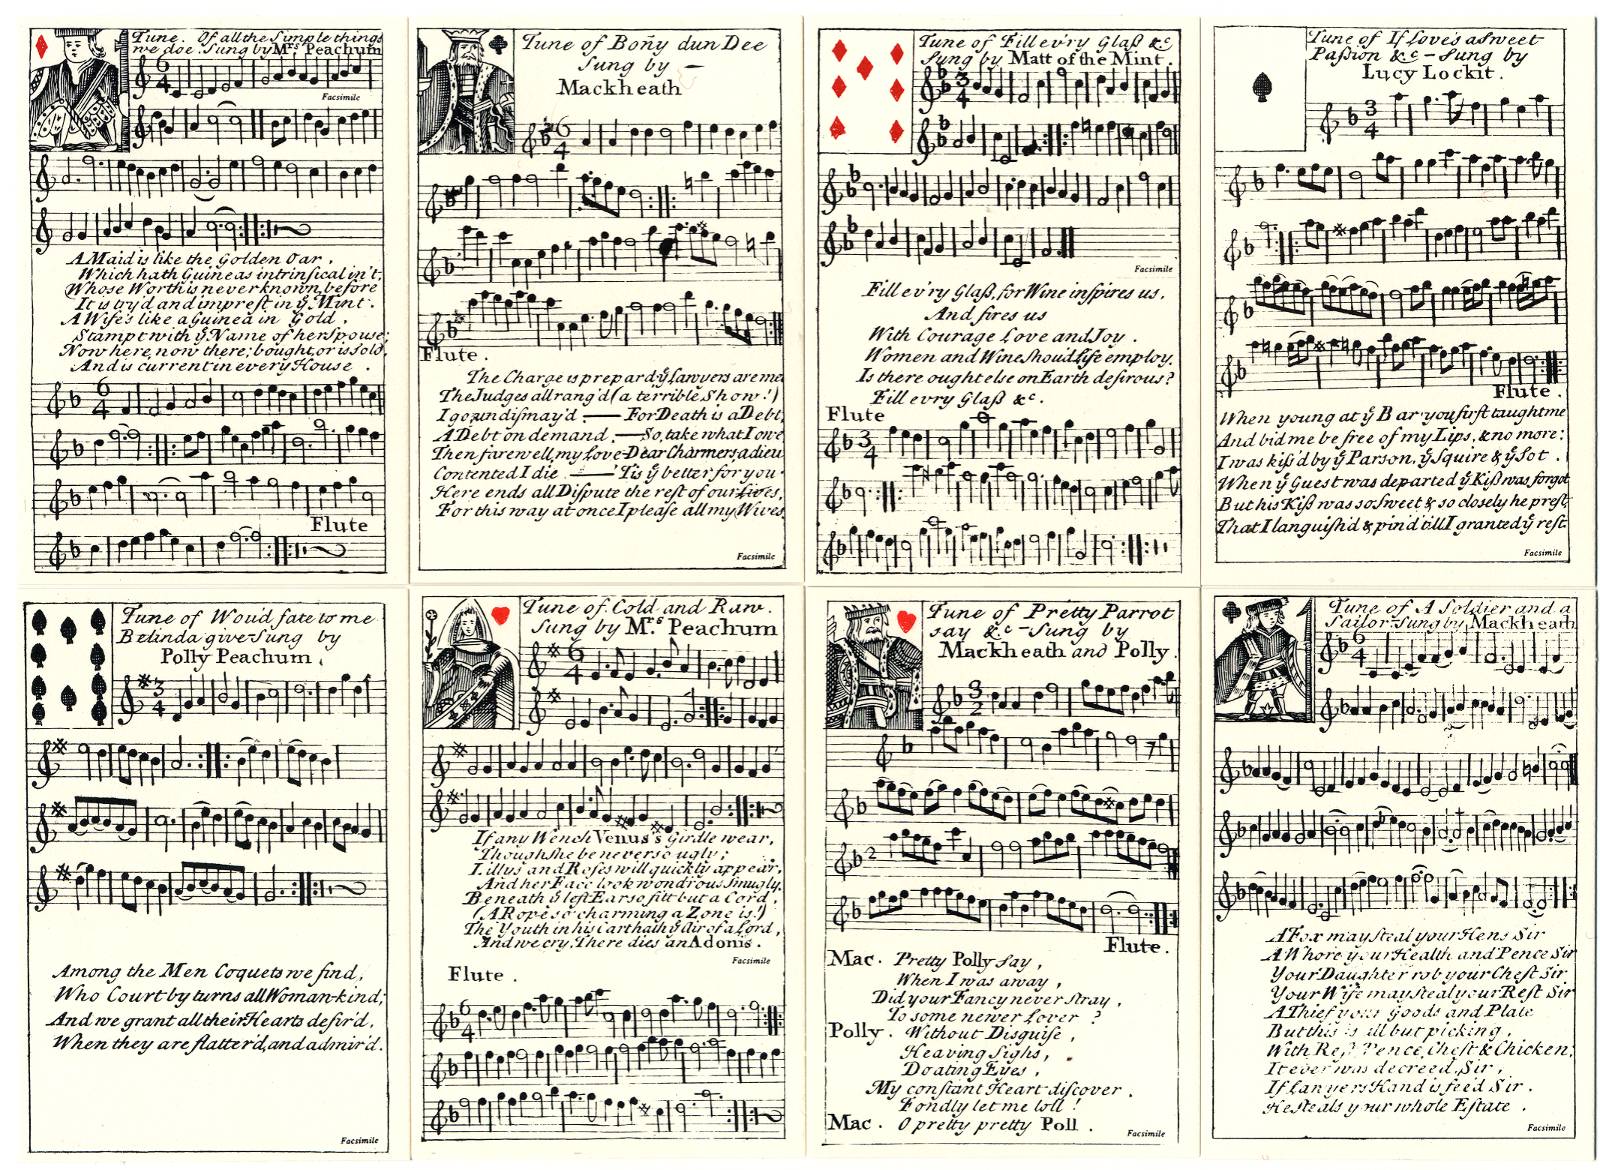 Tune. Of all the simple things
we doe. Sung by Mrs Peachum
6
4
Facsimile
A Maid is like the Golden Oar,
Which hath Guineas intrinsical in't,
Whose Worth is never known, before
It is try'd and imprest in ye Mint.
A Wife's like a Guinea in Gold,
Stampt with ye Name of her spouse;
Now here, now there; bought, or is sold,
And is current in every House.
6
4
Flute
Tune of Boñy dun Dee
Sung by —
Mackheath
6
4
Flute.
The Charge is prepar'd ye Lawyers are met
The Judges all rang'd (a terrible Show!)
I go, undismay'd — For Death is a Debt,
A Debt on demand. — So, take what I owe
Then farewell, my Love - Dear Charmers, adieu
Contented I die — 'Tis ye better for you.
Here ends all Dispute the rest of our Lives,
For this way at once I please all my Wives
Facsimile
Tune of Fill ev'ry Glaß &c
Sung by Matt of the Mint.
3
4
Facsimile
Fill ev'ry Glaß, for Wine inspires us,
And fires us
With Courage Love and Joy.
Women and Wine shoud Life employ.
Is there ought else on Earth desirous?
Fill evry Glaß &c.
Flute
3
4
Tune of If Love's a Sweet
Paßion &c - Sung by
Lucy Lockit.
3
4
Flute.
When young at ye Bar you first taught me
And bid me be free of my Lips, & no more;
I was kiß'd by ye Parson, ye Squire & ye Sot.
When ye Guest was departed ye Kiß was forgot
But his Kiß was so Sweet & so closely he prest
That I languish'd & pin'd till I granted ye rest
Facsimile
Tune of Wou'd fate to me
Belinda give - Sung by
Polly Peachum.
3
4
Among the Men Coquets we find,
Who Court by turns all Woman-kind;
And we grant all their Hearts desir'd,
When they are flatter'd, and admir'd.
Facsimile
Tune of Cold and Raw.
Sung by Mrs. Peachum
6
4
If any Wench Venus's Girdle wear,
Though she be never so ugly;
Lillys and Roses will quickly appear,
And her Face look wondrous smugly.
Beneath ye left Ear so fitt but a Cord,
(A Rope so charming a Zone is!)
The Youth in his Cart hath ye Air of a Lord,
And we cry, There dies an Adonis.
Facsimile
Flute.
6
4
Tune of Pretty Parrot
say &c - Sung by
Mackheath and Polly.
3
2
2
Flute.
Mac. Pretty Polly say,
When I was away,
Did your Fancy never stray,
To some newer Lover?
Polly. Without Disguise,
Heaving Sighs,
Doating Eyes,
My constant Heart discover.
Fondly let me loll!
Mac. O pretty pretty Poll.
Facsimile
Tune of A Soldier and a
Sailor - Sung by Mackheath
6
4
A Fox may steal your Hens Sir
A Whore your Health and Pence Sir
Your Daughter rob your Chest Sir
Your Wife may steal your Rest Sir
A Thief your Goods and Plate
But this is all but picking,
With Rest Pence, Chest & Chicken;
It ever was decreed Sir,
If Lawyers Hand is fee'd Sir.
He steals your whole Estate.
Facsimile